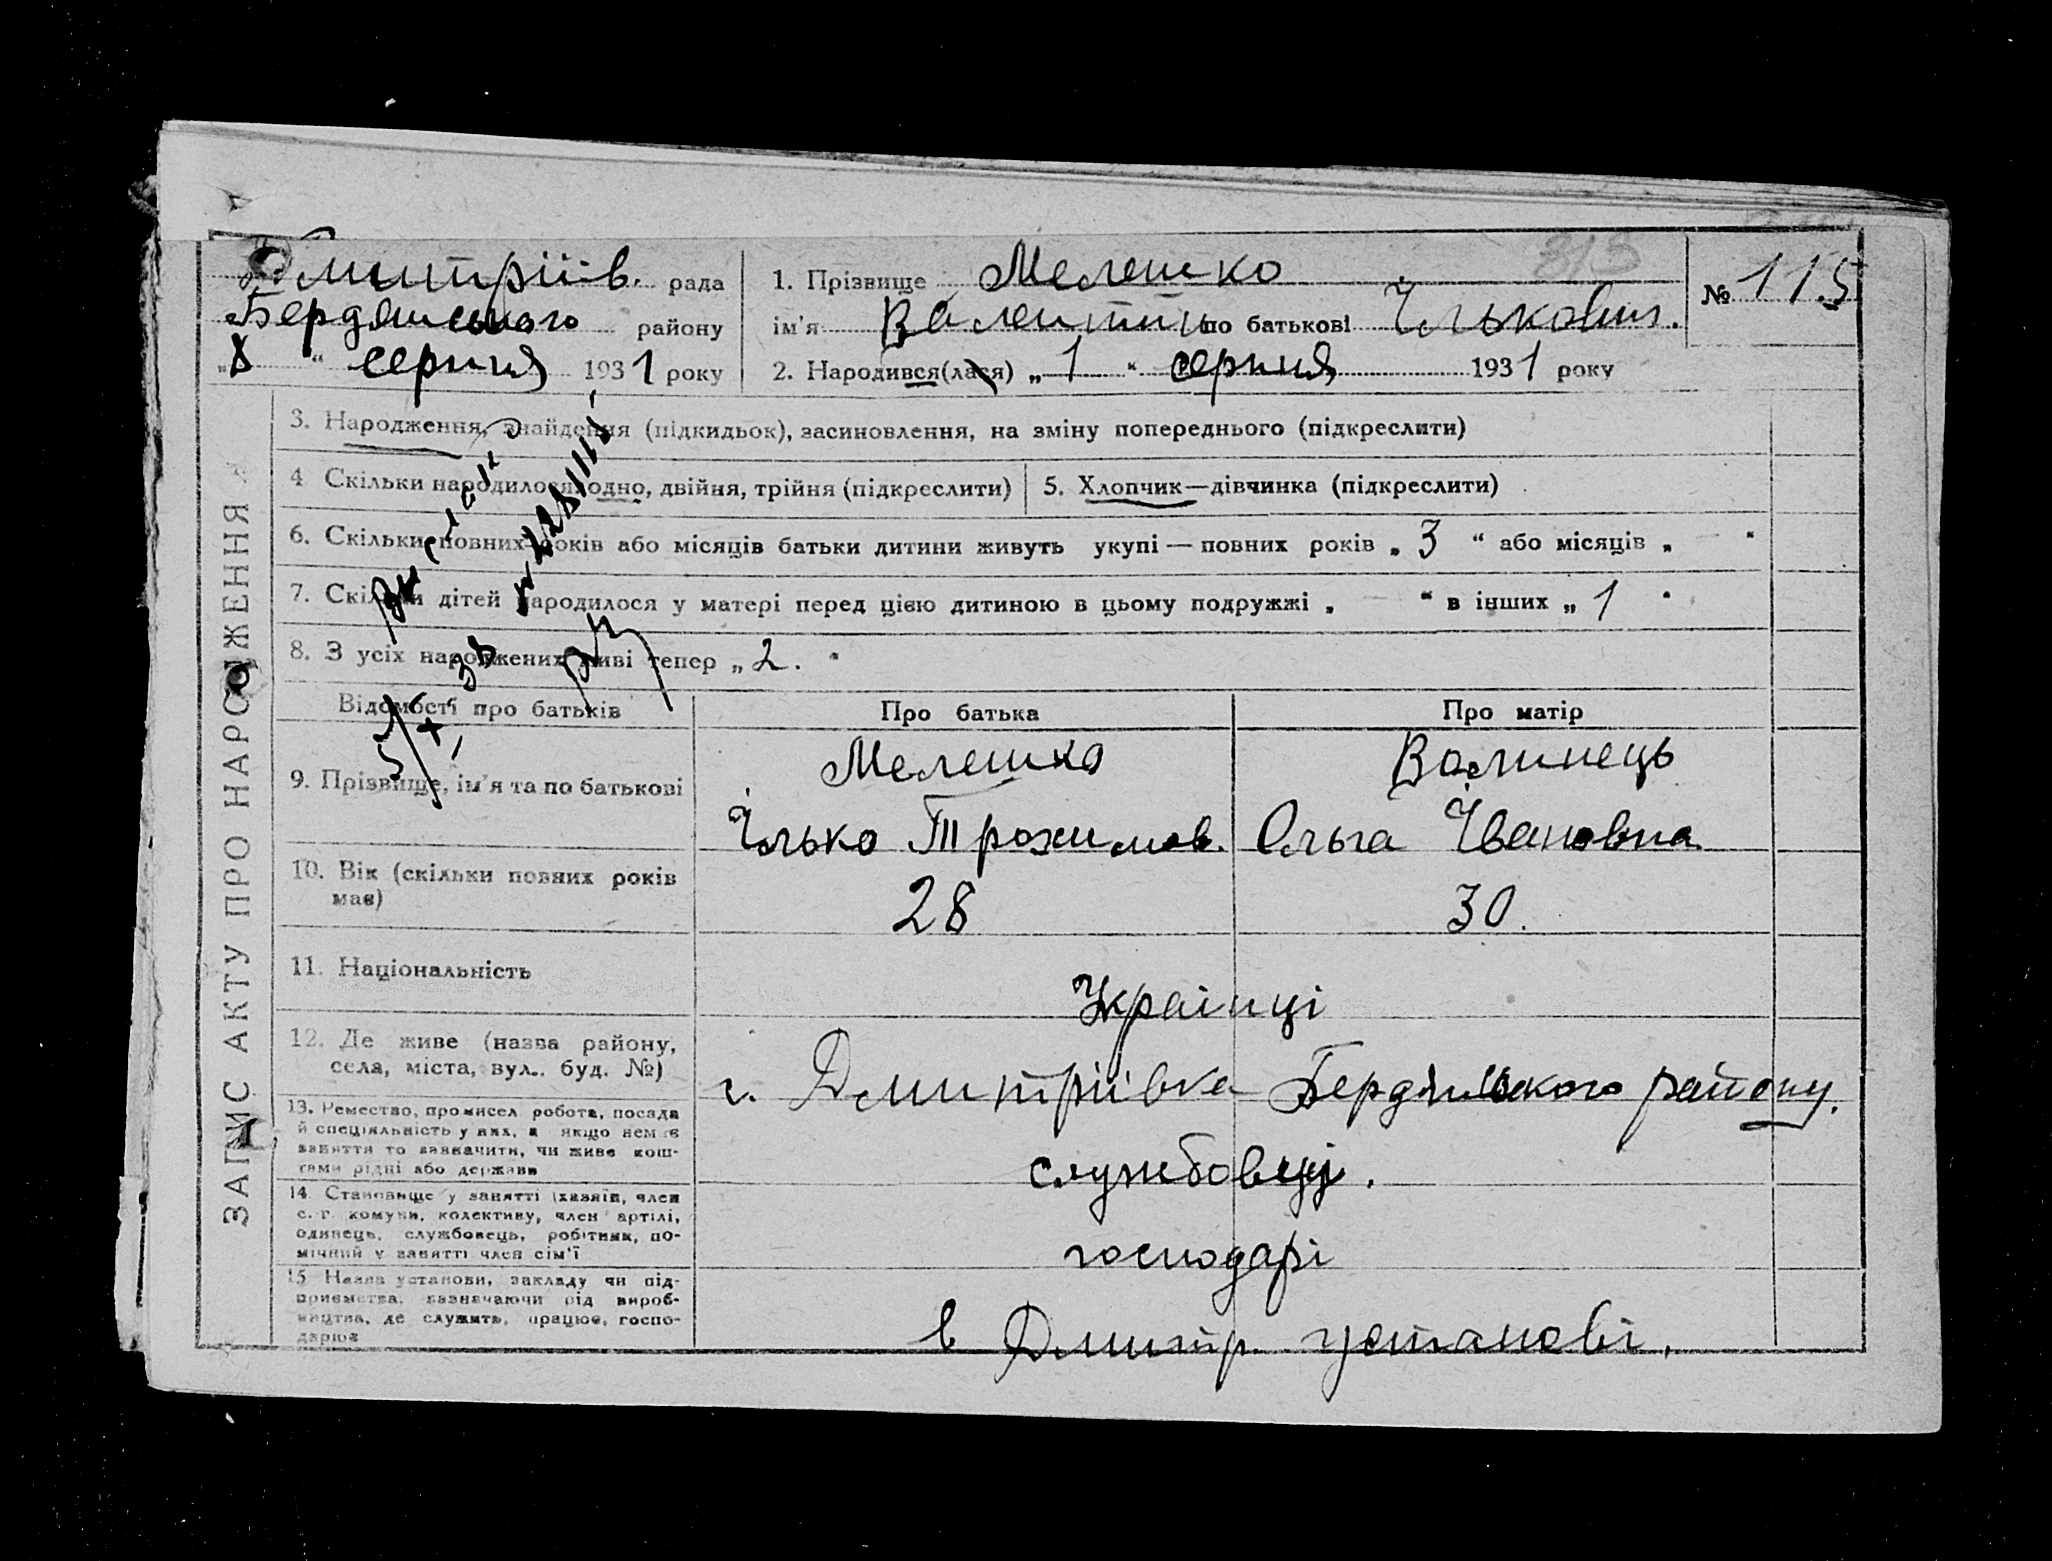 Дмитріїв. рада
Бердянського району
„8“ серпня 1931 року
1. Прізвище Мелешко
ім'я Валентин по батькові Ількович.
2. Народився(лася) „1“ серпня 1931 року
№ 115
313
3. Народження, знайдення (підкидьок), засиновлення, на зміну попереднього (підкреслити)
4 Скільки народилося: одно, двійня, трійня (підкреслити)
5. Хлопчик—дівчинка (підкреслити)
6. Скільки повних років або місяців батьки дитини живуть укупі — повних років „3“ або місяців „—“
7. Скільки дітей народилося у матері перед цією дитиною в цьому подружжі „—“ в інших „1“
8. З усіх народжених живі тепер „2.“
Відомості про батьків
Про батька
Про матір
9. Прізвище, ім'я та по батькові
Мелешко
Ілько Трохимов.
Волинець
Ольга Івановна
10. Вік (скільки повних років має)
28
30.
11. Національність
Українці
12. Де живе (назва району,
села, міста, вул., буд. №)
с. Дмитріївка Бердянського району.
13. Ремество, промисел робота, посада
й спеціяльність у них, а якщо нем є
заняття то зазначити, чи живе кош-
тами рідні або держави
службовці.
14. Становище у занятті (хазяїн, член
с.-г. комуни, колективу, член артілі,
одинець, службовець, робітник, по-
мічний у занятті член сім'ї
господарі
15 Назва установи, закладу чи під-
приємства, зазначаючи рід вироб-
ництва, де служить, працює, госпо-
дарює
в Дмитр. установі.
ЗАПИС АКТУ ПРО НАРОДЖЕННЯ